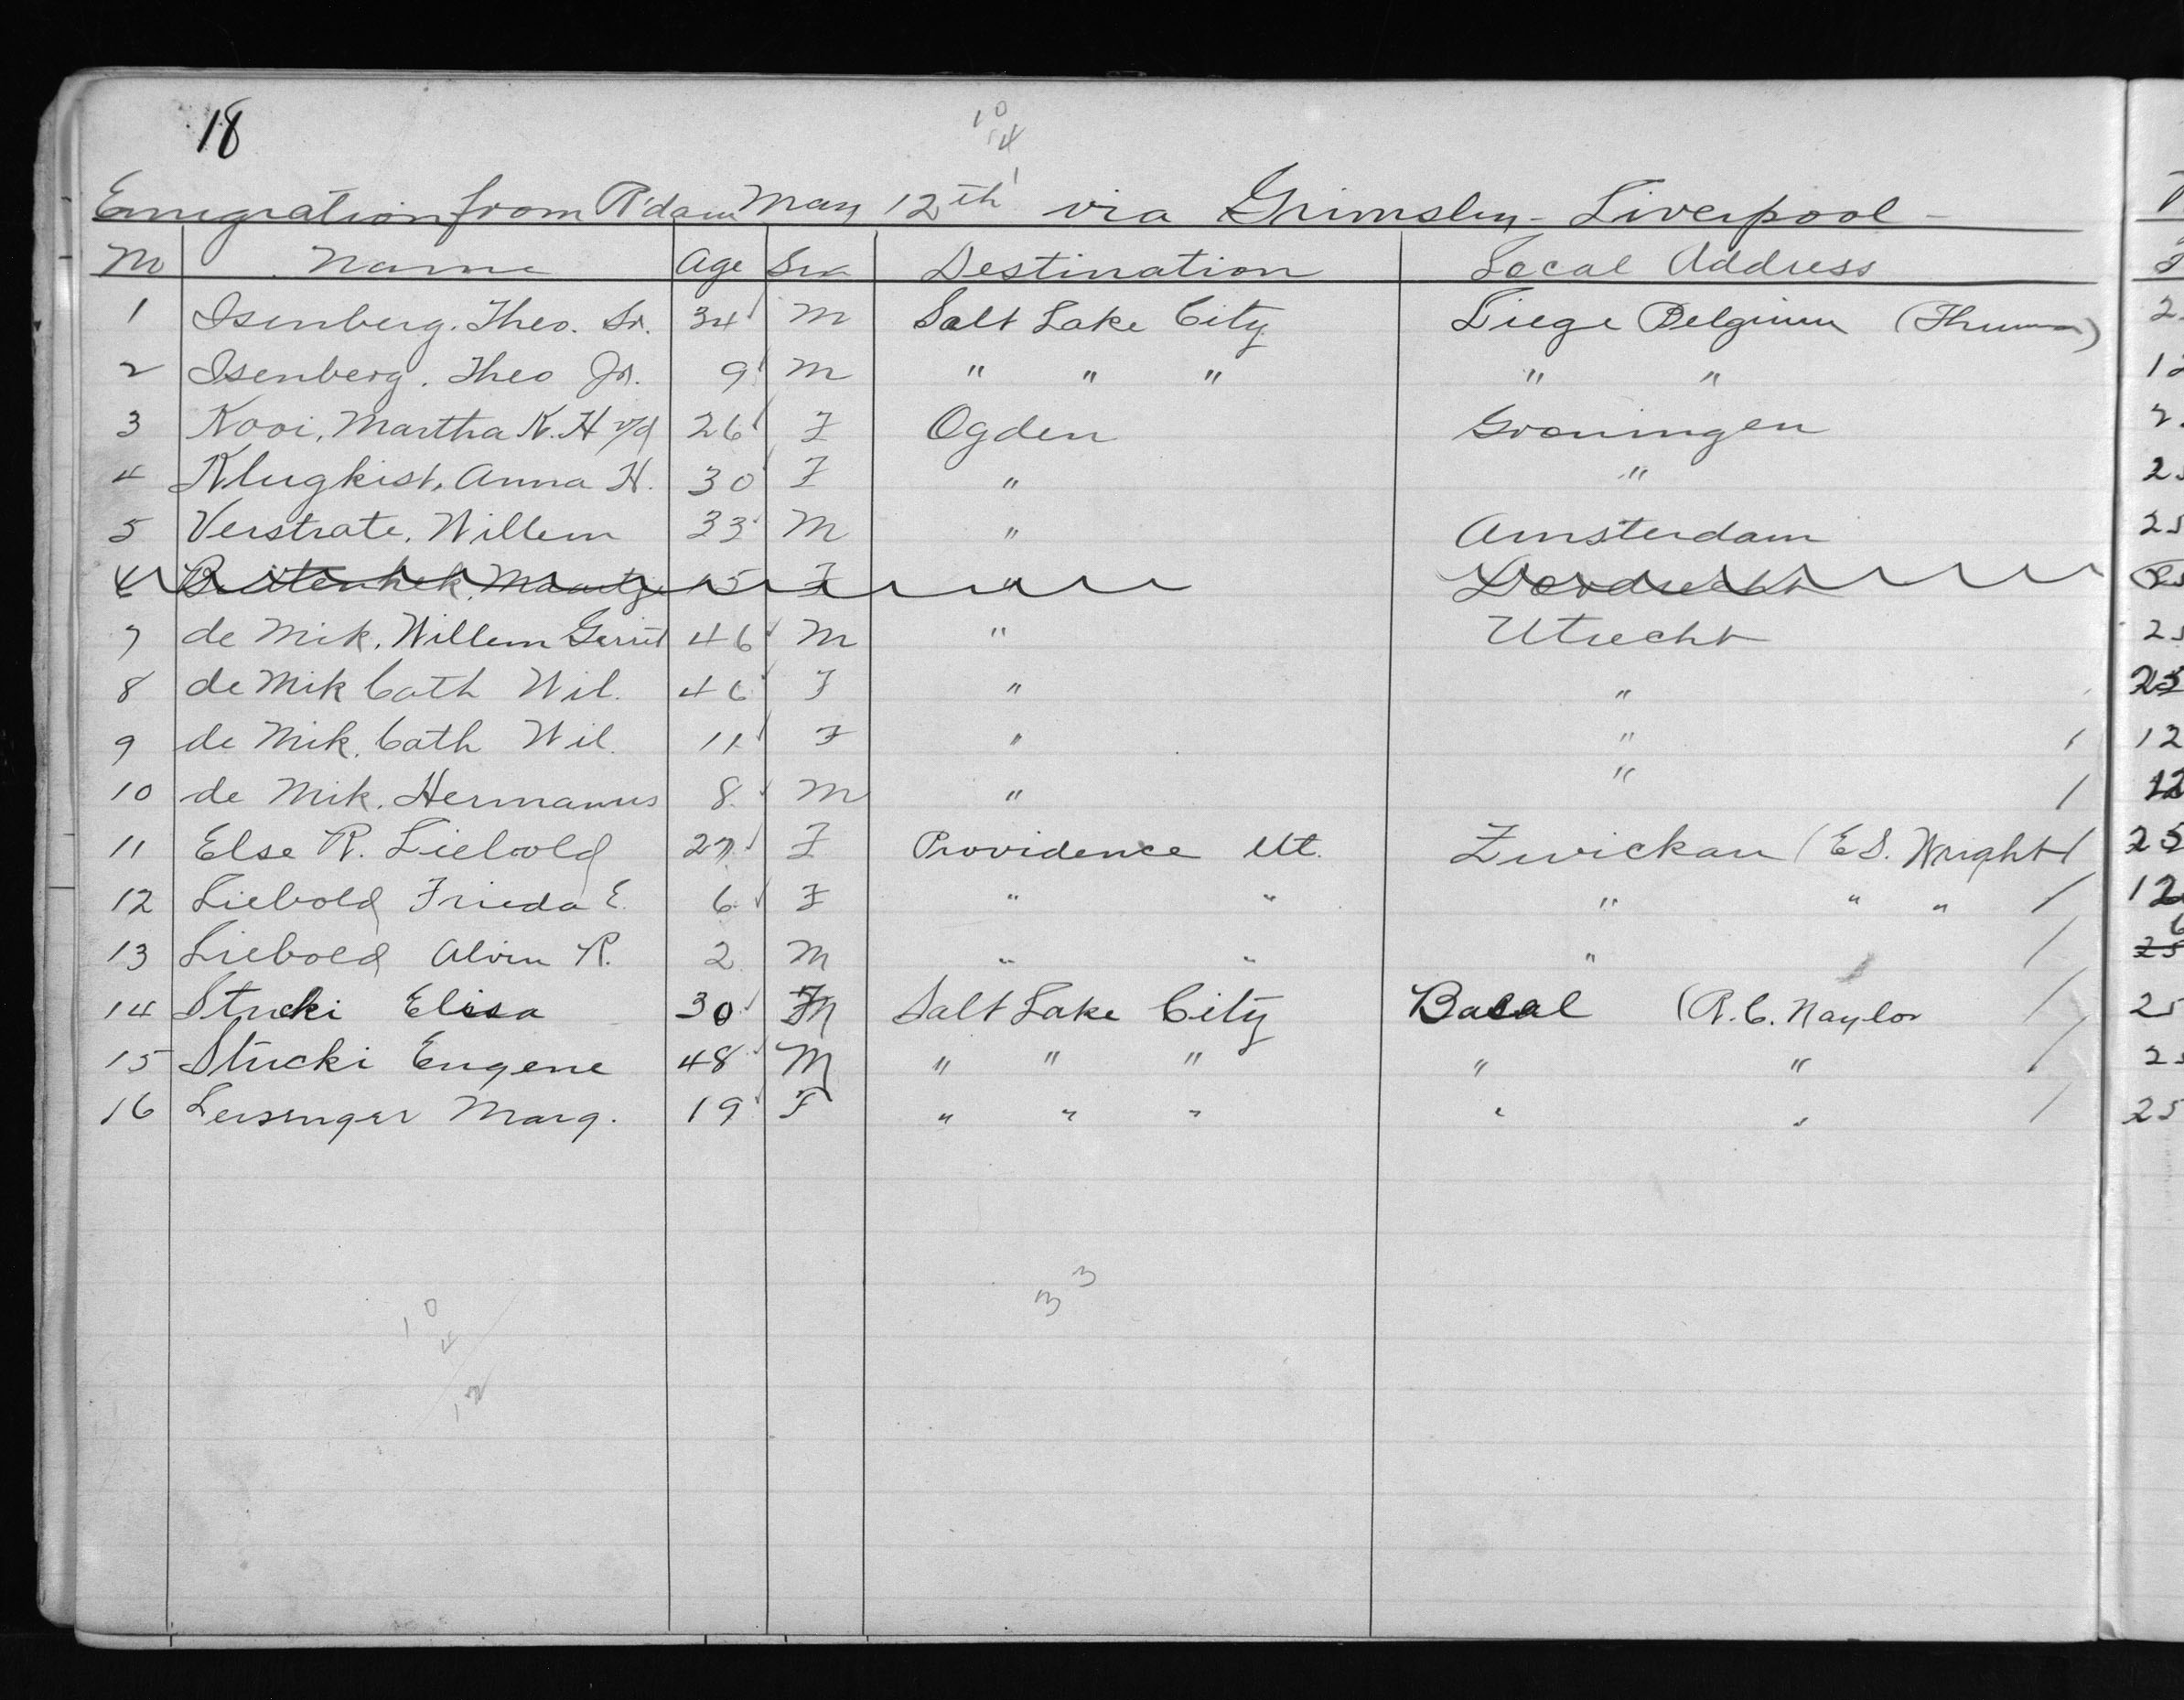 18
10
4
Emigration from R'dam May 12th via Grimsby - Liverpool -
No Name Age Sex Destination Local Address
1 Isenberg, Theo. Sr. 34 M Salt Lake City Liege Belgium
2 Isenberg, Theo Jr. 9 M " " " " "
3 Kooi, Martha K. H v/d 26 F Ogden Groningen
4 Klugkist, Anna H. 30 F " "
5 Verstrate, Willem 33 M " Amsterdam
F " Dordrecht
7 de Mik, Willem Gerrit 46 M " Utrecht
8 de Mik Cath Wil. 46 F " "
9 de Mik, Cath Wil. 11 F " "
10 de Mik, Hermanus 8 M " "
11 Else R. Liebold 27 F Providence Ut. Zwickau (E S. Wright)
12 Liebold Frieda E. 6 F " " " " "
13 Liebold Alvin R. 2 M " " "
14 Stucki Elisa 30 F Salt Lake City Basal (R. C. Naylor
15 Stucki Eugene 48 M " " " " "
16 Leisinger Marg. 19 F " " " " "
3
3
10
4
12